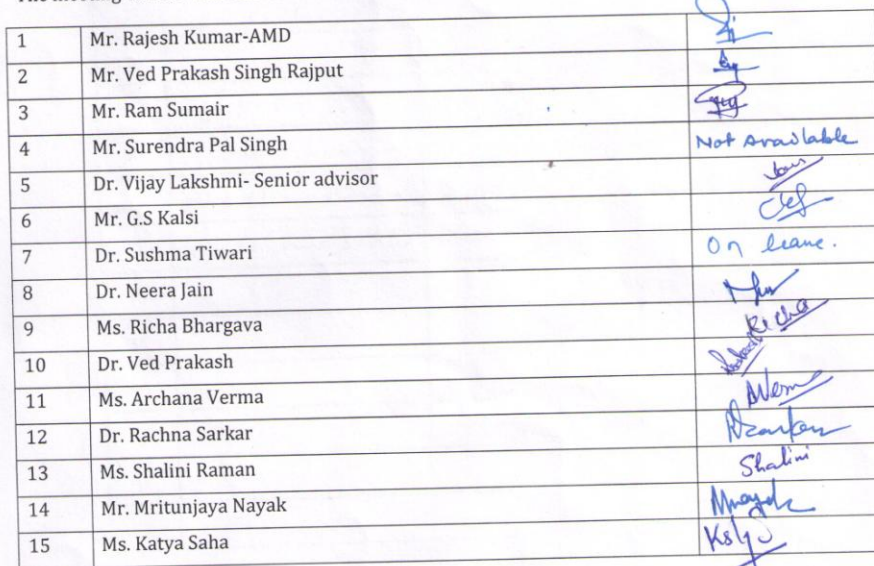 1 Mr. Rajesh Kumar-AMD
2 Mr. Ved Prakash Singh Rajput
3 Mr. Ram Sumair
4 Mr. Surendra Pal Singh Not Available
5 Dr. Vijay Lakshmi- Senior advisor
6 Mr. G.S Kalsi
7 Dr. Sushma Tiwari On leave.
8 Dr. Neera Jain
9 Ms. Richa Bhargava Richa
10 Dr. Ved Prakash
11 Ms. Archana Verma
12 Dr. Rachna Sarkar
13 Ms. Shalini Raman Shalini
14 Mr. Mritunjaya Nayak
15 Ms. Katya Saha